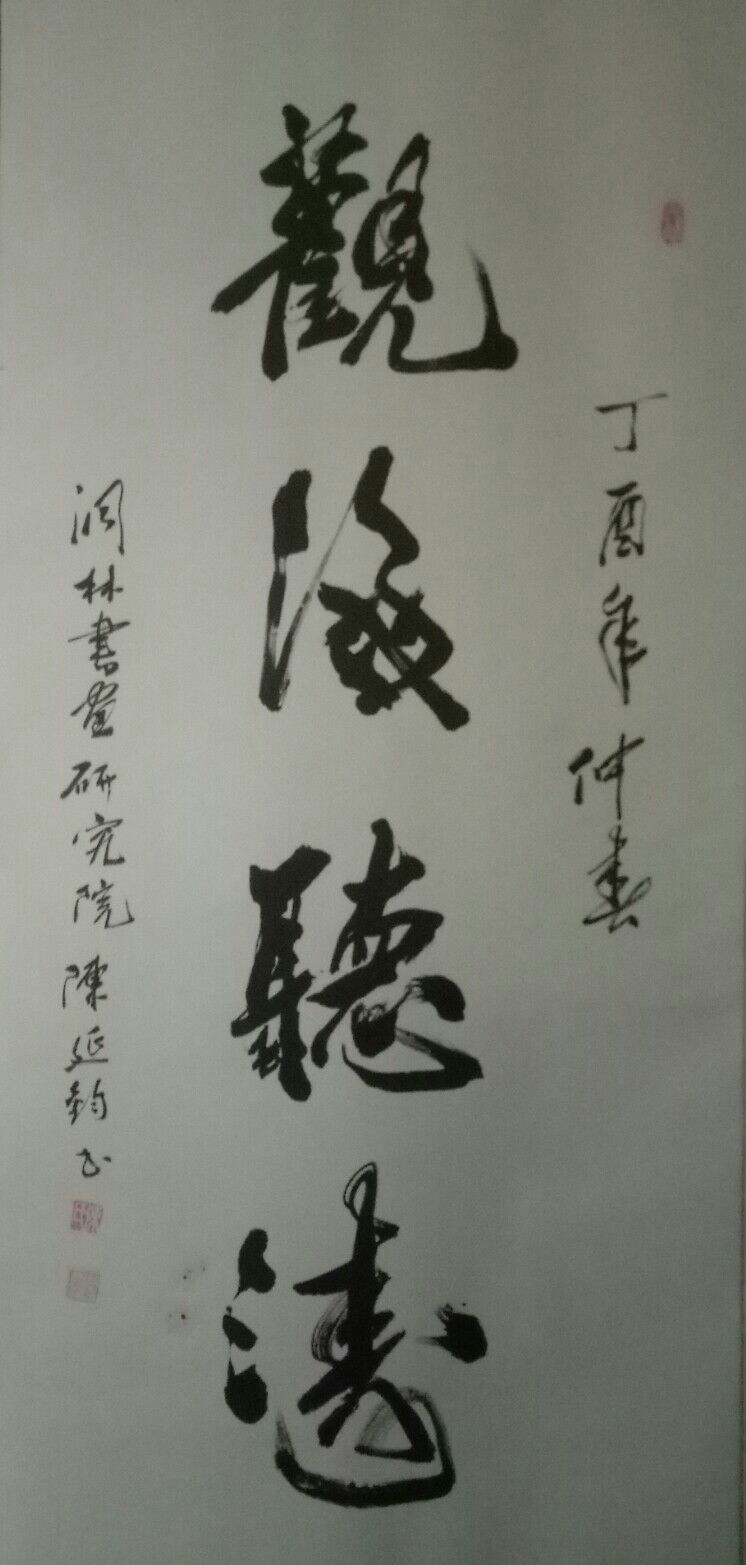 丁酉年仲春
觀海聽濤
澗林書畫研究院陳延鈞书